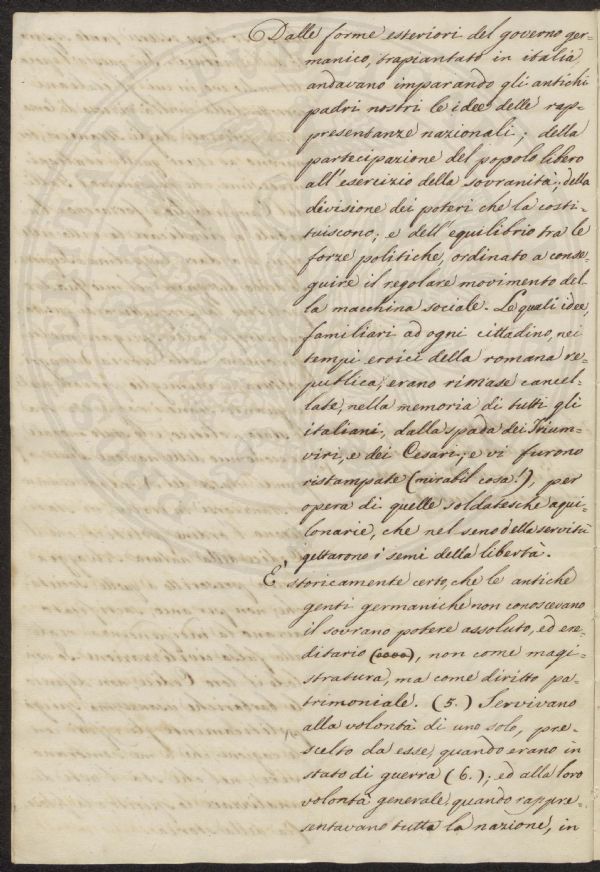 Dalle forme esteriori del governo ger=
manico, trapiantato in italia,
andavano imparando gli antichi
padri nostri le idee delle rap=
presentanze nazionali; della
partecipazione del popolo libero
all'esercizio della sovranità; della
divisione dei poteri che la costi=
tuiscono; e dell'equilibrio tra le
forze politiche, ordinato a conse=
guire il regolare movimento del=
la macchina sociale. Le quali idee,
familiari ad ogni cittadino, nei
tempi eroici della romana re=
pubblica, erano rimase cancel=
late, nella memoria di tutti gli
italiani, dalla spada dei Trium=
viri, e dei Cesari; e vi furono
ristampate (mirabil cosa!), per
opera di quelle soldatesche aqui=
lonarie, che nel seno della servitù
gettarono i semi della libertà.
E' storicamente certo, che le antiche
genti germaniche non conoscevano
il sovrano potere assoluto, ed ere=
ditario, non come magi=
stratura, ma come diritto pa=
trimoniale. (5.) Servivano
alla volontà di uno solo, pre=
scelto da esse, quando erano in
stato di guerra (6.); ed alla loro
volontà generale, quando rappre=
sentavano tutta la nazione, in